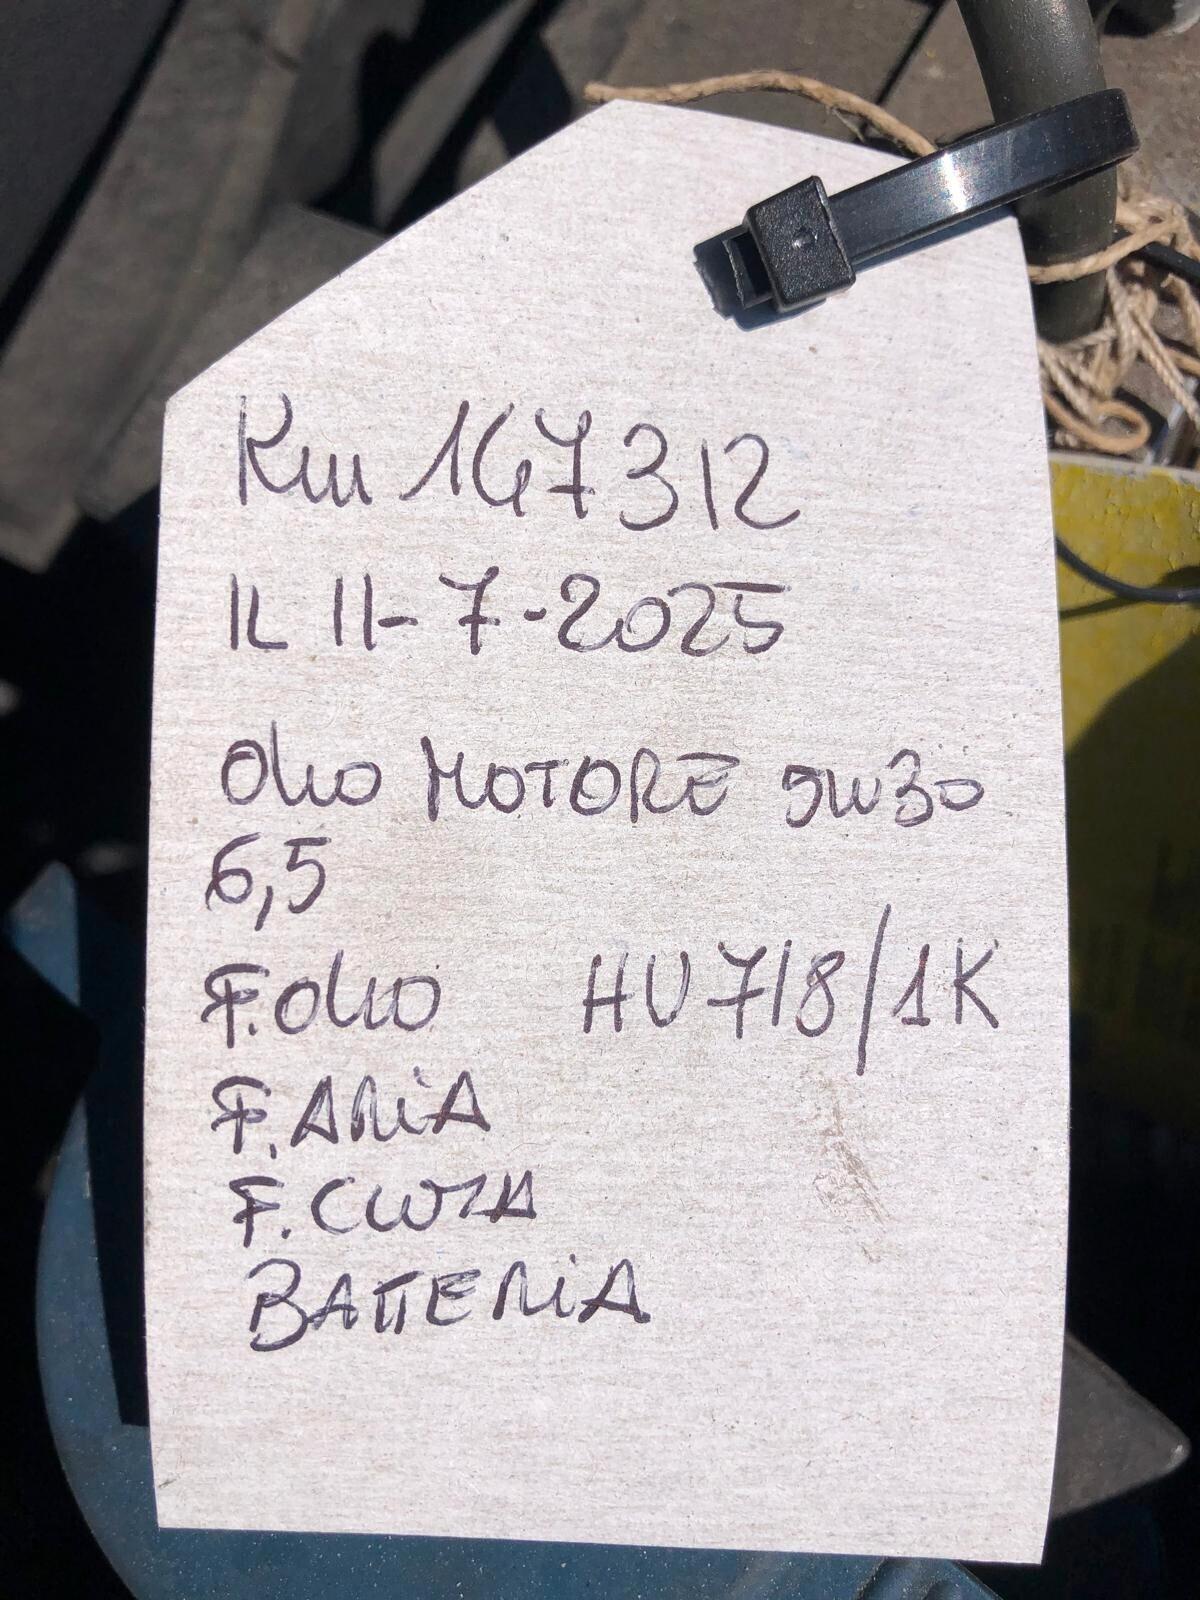 Km 167312
IL 11-7-2025
Olio MOTORE 5W30
6,5
F.Olio HU 718/1K
F.ARiA
F.CLIMA
BATTERiA